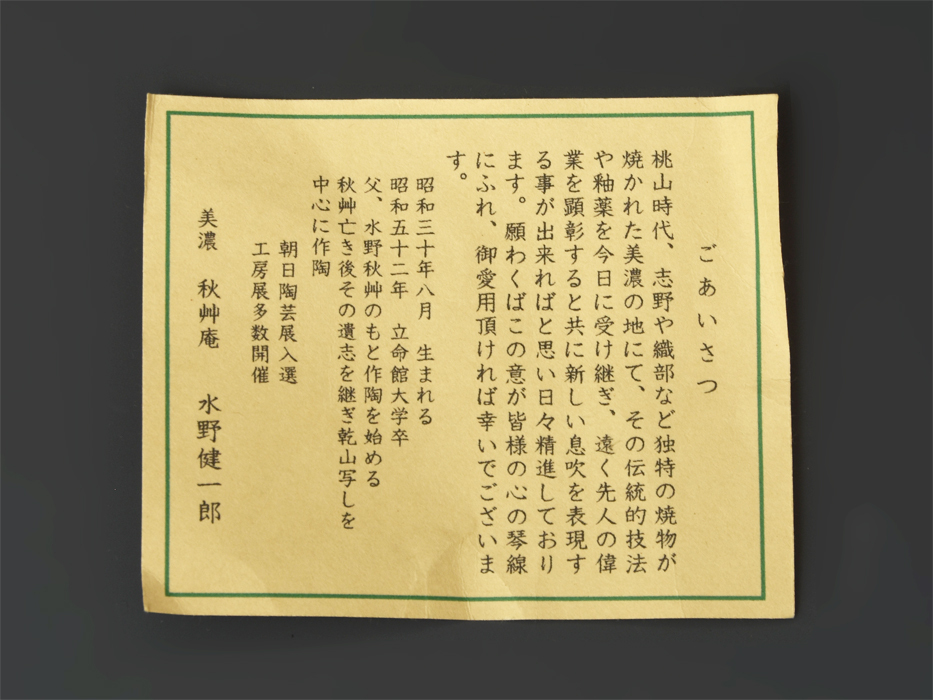 ごあいさつ
桃山時代、志野や織部など独特の焼物が
焼かれた美濃の地にて、その伝統的技法
や釉薬を今日に受け継ぎ、遠く先人の偉
業を顕彰すると共に新しい息吹を表現す
る事が出来ればと思い日々精進しており
ます。願わくばこの意が皆様の心の琴線
にふれ、御愛用頂ければ幸いでございま
す。
昭和三十年八月　生まれる
昭和五十二年　立命館大学卒
父、水野秋艸のもと作陶を始める
秋艸亡き後その遺志を継ぎ乾山写しを
中心に作陶
朝日陶芸展入選
工房展多数開催
美濃　秋艸庵　水野健一郎